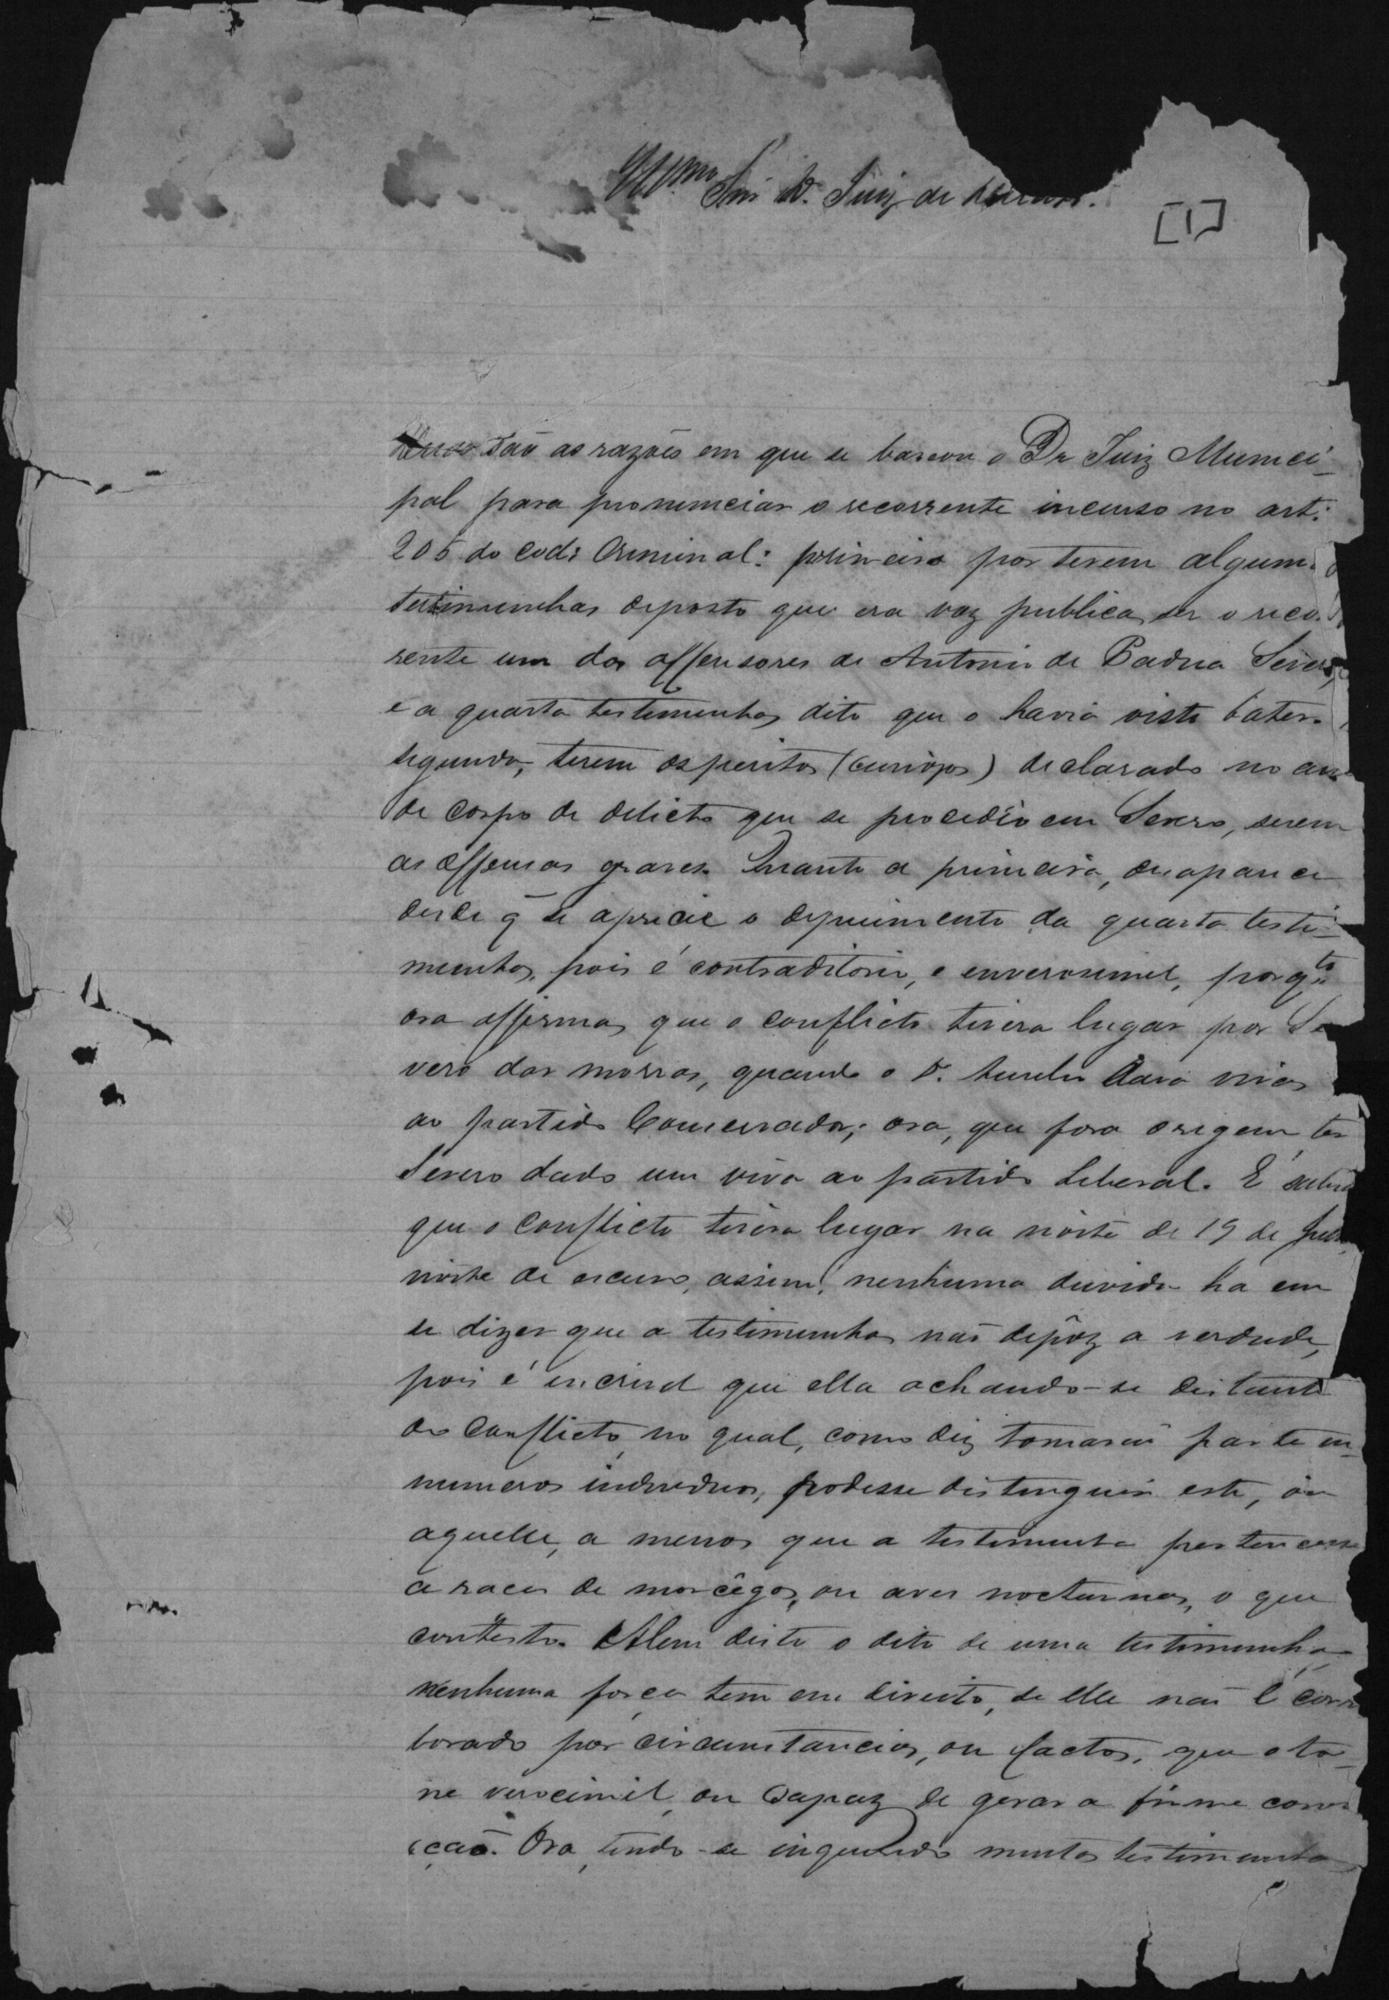 Illmo Snr Dr. Juiz de
[1]
Duas são as razões em que se baseou o Dr Juiz Munici-
pal para pronunciar o recorrente incurso no art:
205 do cod: Criminal: primeiro por terem algum
testimunhas deposto que era voz publica, ser o reco
rente um dos offensores de Antonio de Padua Severo,
e a quarta testemunha, dito que o havia visto bater
segundo, terem os peritos (curiosos) declarado no au
de corpo de delicto que se procedêo em Severo, serem
as offensas graves. Quanto a primeira, desaparece
desde q̃ se aprecie o depuimento da quarta testi-
munha, pois é contraditorio, e enverosimel, porq.to
ora affirma, que o conflicto tivera lugar por Se
vero dar morras, quando o Dr. dava vivas
ao partido Conservador; ora, que fora origem ter
Severo dado um viva ao partido Liberal. É sabido
que o conflicto tivera lugar na noite de 19 de
noite de escuro, assim, nenhuma duvida ha em
se dizer que a testimunha, não depôz a verdade,
pois é incrivel que ella achando-se distante
do conflicto, no qual, como diz tomarão parte in-
numeros individuos, podesse distinguir este, ou
aquelle, a menos que a testimunha pertencesse
a raça de morcêgos, ou aves nocturnas, o que
contesto. Alem disto o dito de uma testimunha
nenhuma força tem em direito, se elle não é corro
borado por circumstancias, ou factos, que o to-
ne verocimil, ou capaz de gerar a firme conv
icção. Ora, tendo-se inquerido muitas testimunhas